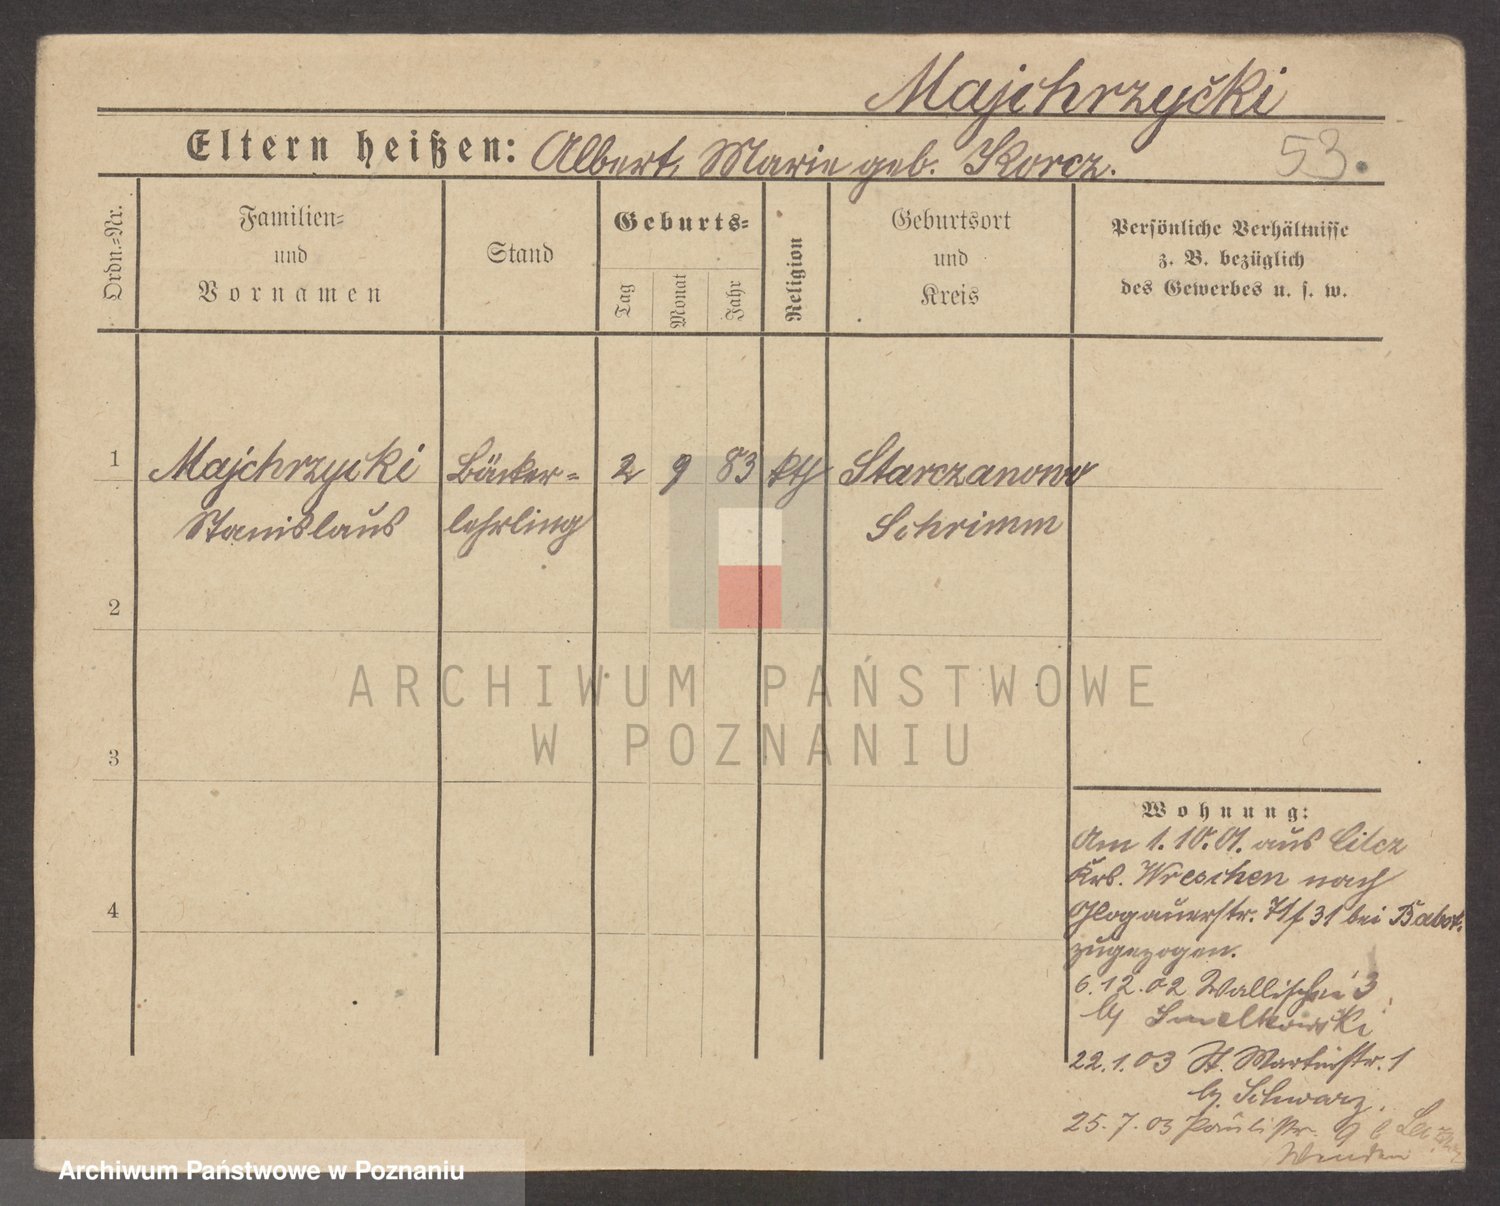 Majchrzycki
Eltern heißen: Albert, Marie geb. Korcz.
53.
Ordn.=Nr.
Familien=
und
Vornamen
Stand
Geburts=
Tag
Monat
Jahr
Religion
Geburtsort
und
Kreis
Persönliche Verhältnisse
z. B. bezüglich
des Gewerbes u. s. w.
1 Majchrzycki Bäcker= 2 9 83 kth Starczanowo
Stanislaus lehrling Schrimm
2
3
4
ARCHIWUM PAŃSTWOWE
W POZNANIU
Wohnung:
Am 1. 10. 01. aus
Krs. Wreschen nach
Glogauerstr. 71/ 31 bei
zugezogen.
6. 12. 02 Wallischei 3
b/
22. 1. 03 St. Martinstr. 1
b/ Schwarz.
25. 7. 03 Paulistr. 9 b
Archiwum Państwowe w Poznaniu